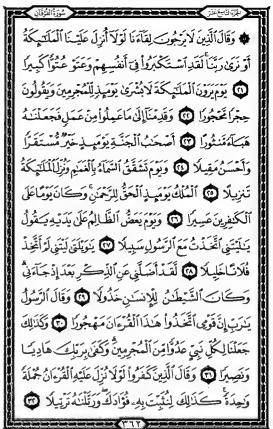 الجزء التاسع عشر سورة الفرقان
۞ وَقَالَ ٱلَّذِينَ لَا يَرْجُونَ لِقَآءَنَا لَوْلَآ أُنزِلَ عَلَيْنَا ٱلْمَلَٰٓئِكَةُ
أَوْ نَرَىٰ رَبَّنَا ۗ لَقَدِ ٱسْتَكْبَرُوا۟ فِىٓ أَنفُسِهِمْ وَعَتَوْ عُتُوًّا كَبِيرًا
٢١ يَوْمَ يَرَوْنَ ٱلْمَلَٰٓئِكَةَ لَا بُشْرَىٰ يَوْمَئِذٍ لِّلْمُجْرِمِينَ وَيَقُولُونَ
حِجْرًا مَّحْجُورًا ٢٢ وَقَدِمْنَآ إِلَىٰ مَا عَمِلُوا۟ مِنْ عَمَلٍ فَجَعَلْنَٰهُ
هَبَآءً مَّنثُورًا ٢٣ أَصْحَٰبُ ٱلْجَنَّةِ يَوْمَئِذٍ خَيْرٌ مُّسْتَقَرًّا
وَأَحْسَنُ مَقِيلًا ٢٤ وَيَوْمَ تَشَقَّقُ ٱلسَّمَآءُ بِٱلْغَمَٰمِ وَنُزِّلَ ٱلْمَلَٰٓئِكَةُ
تَنزِيلًا ٢٥ ٱلْمُلْكُ يَوْمَئِذٍ ٱلْحَقُّ لِلرَّحْمَٰنِ ۚ وَكَانَ يَوْمًا عَلَى
ٱلْكَٰفِرِينَ عَسِيرًا ٢٦ وَيَوْمَ يَعَضُّ ٱلظَّالِمُ عَلَىٰ يَدَيْهِ يَقُولُ
يَٰلَيْتَنِى ٱتَّخَذْتُ مَعَ ٱلرَّسُولِ سَبِيلًا ٢٧ يَٰوَيْلَتَىٰ لَيْتَنِى لَمْ أَتَّخِذْ
فُلَانًا خَلِيلًا ٢٨ لَّقَدْ أَضَلَّنِى عَنِ ٱلذِّكْرِ بَعْدَ إِذْ جَآءَنِى ۗ
وَكَانَ ٱلشَّيْطَٰنُ لِلْإِنسَٰنِ خَذُولًا ٢٩ وَقَالَ ٱلرَّسُولُ
يَٰرَبِّ إِنَّ قَوْمِى ٱتَّخَذُوا۟ هَٰذَا ٱلْقُرْءَانَ مَهْجُورًا ٣٠ وَكَذَٰلِكَ
جَعَلْنَا لِكُلِّ نَبِىٍّ عَدُوًّا مِّنَ ٱلْمُجْرِمِينَ ۗ وَكَفَىٰ بِرَبِّكَ هَادِيًا
وَنَصِيرًا ٣١ وَقَالَ ٱلَّذِينَ كَفَرُوا۟ لَوْلَا نُزِّلَ عَلَيْهِ ٱلْقُرْءَانُ جُمْلَةً
وَٰحِدَةً ۚ كَذَٰلِكَ لِنُثَبِّتَ بِهِۦ فُؤَادَكَ ۖ وَرَتَّلْنَٰهُ تَرْتِيلًا ٣٢
٣٦٢